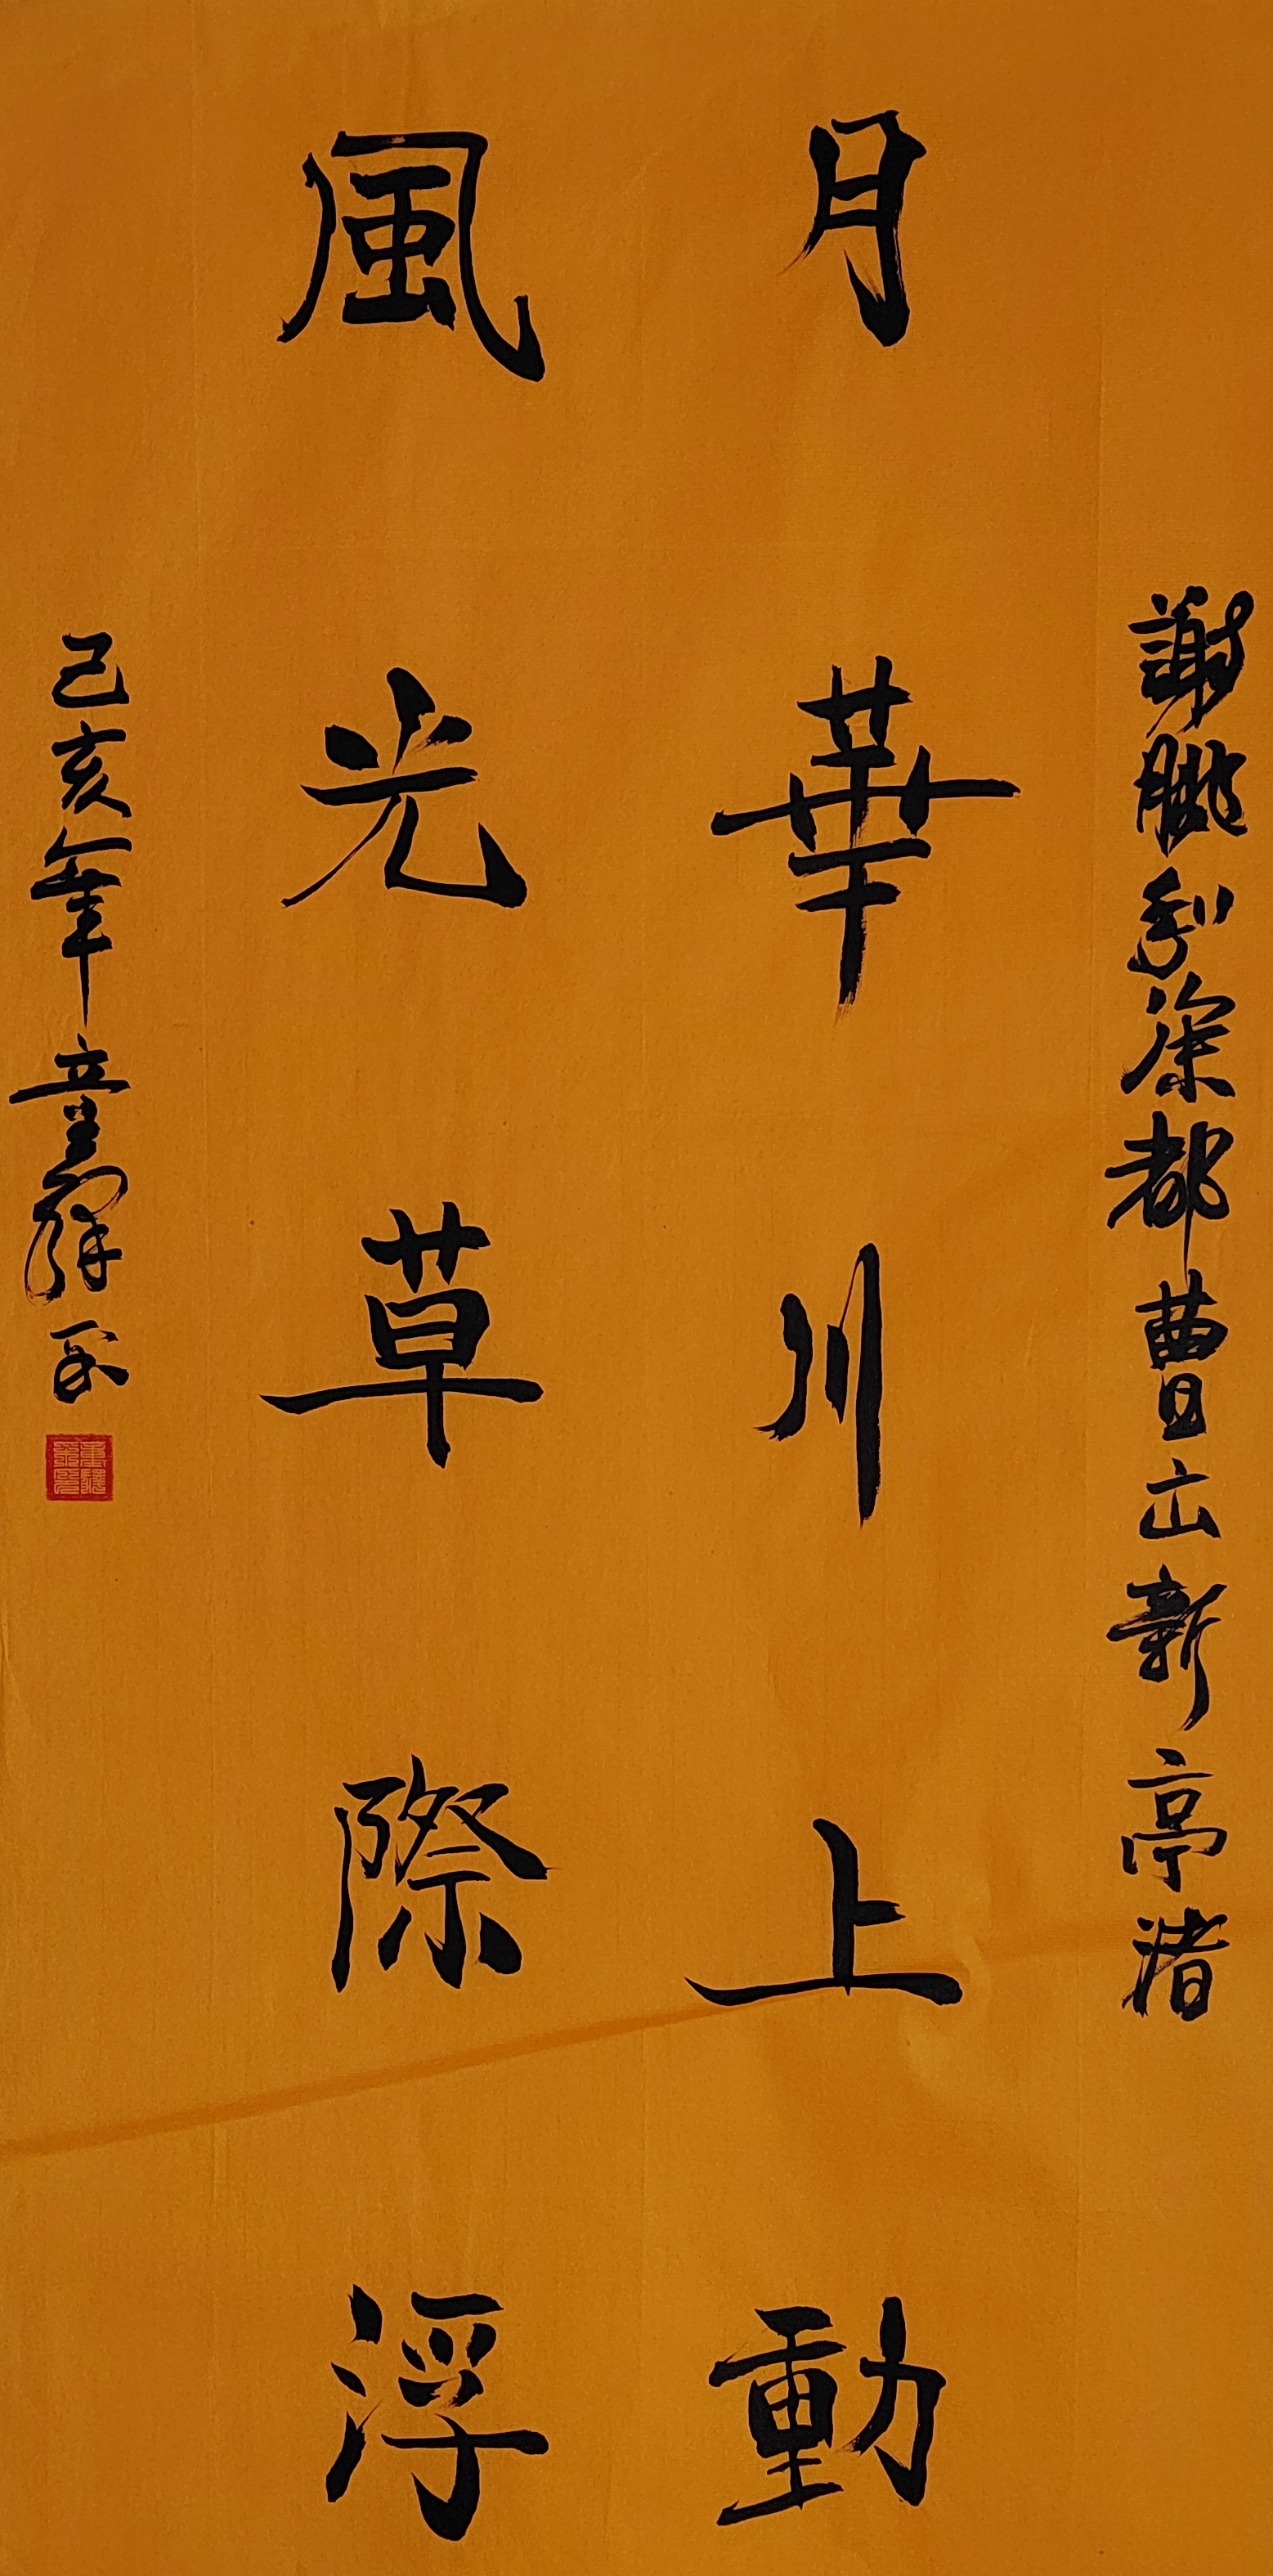 謝朓和徐都曹出新亭渚
月華川上動
風光草際浮
己亥年童